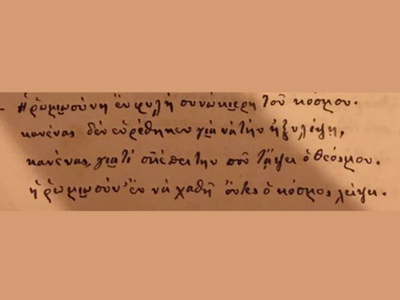 Ἡ ῥωμιοσύνη ἔν φυλὴ συνόκαιρη τοῦ κόσμου.
κανένας δὲν εὑρέθηκεν γιὰ νὰ τὴν ἠξιλείψῃ,
κανένας, γιατὶ σκέπει την ποῦ τἄψη ὁ θεός μου.
ἡ ῥωμιοσύν' ἔν νὰ χαθῇ ὅντες ὁ κόσμος λείψη.